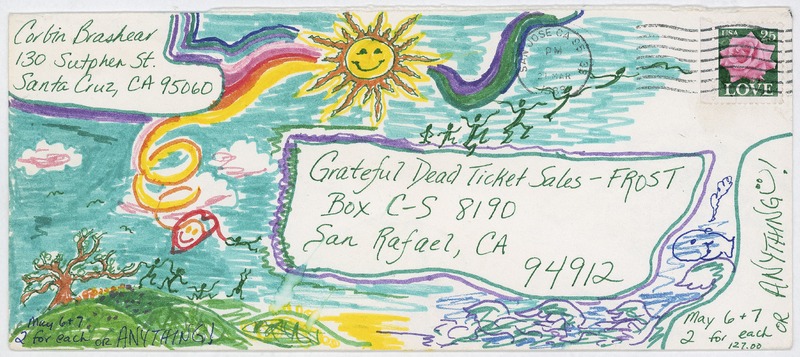 Corbin Brashear
130 Sutphen St.
Santa Cruz, CA 95060
SAN JOSE CA
PM
MAR
USA 25
LOVE
Grateful Dead Ticket Sales - FROST
Box C-S 8190
San Rafael, CA
94912
May 6+7
2 for each or ANYTHING!
May 6+7
2 for each
127.00
OR ANYTHING!